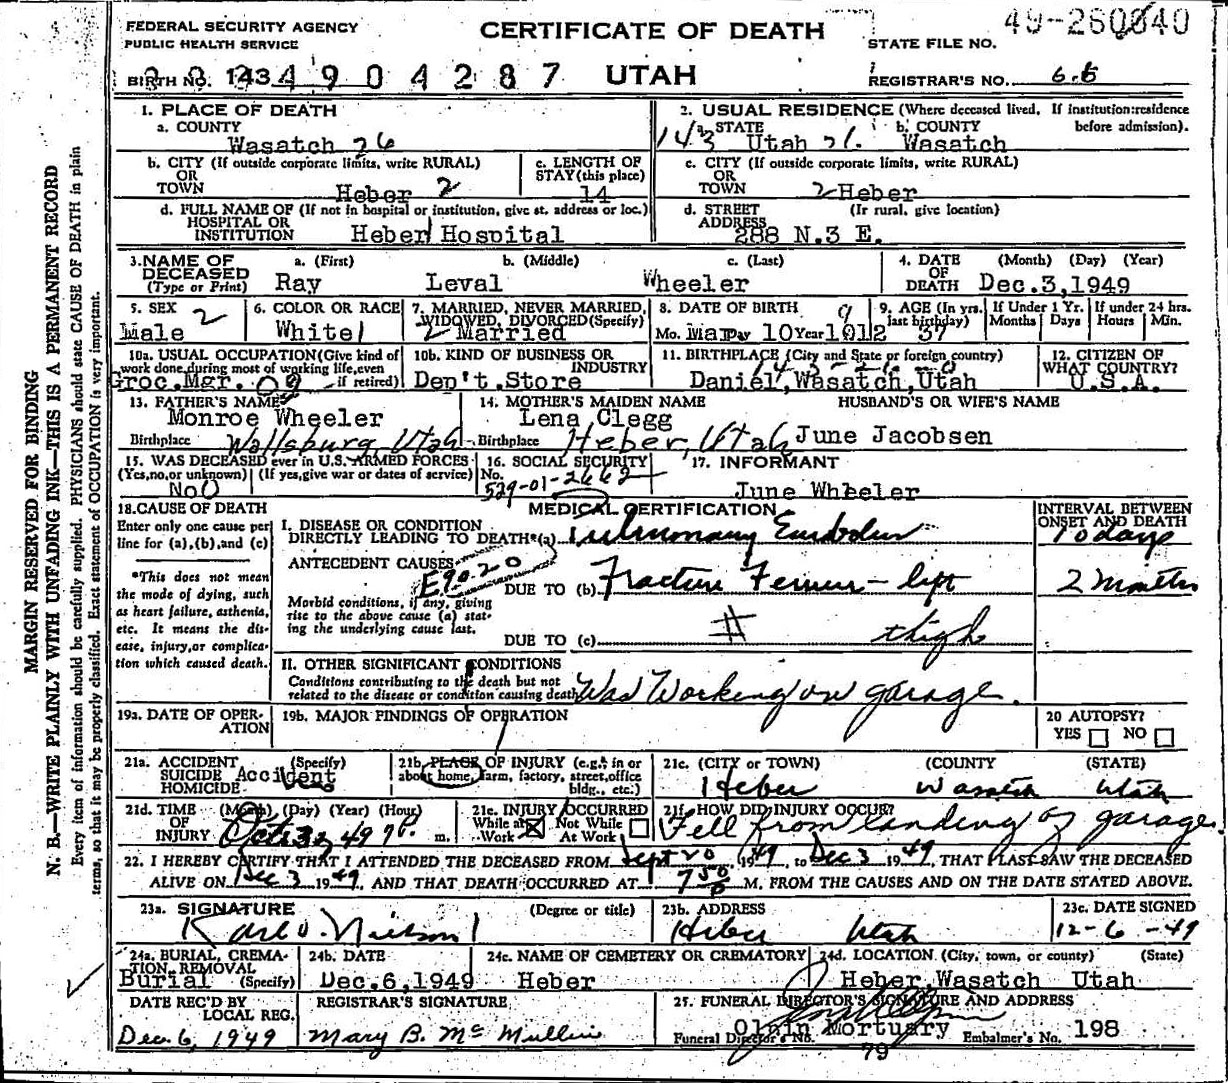 FEDERAL SECURITY AGENCY
PUBLIC HEALTH SERVICE
CERTIFICATE OF DEATH
STATE FILE NO.
BIRTH NO. 143 4904287
UTAH
REGISTRAR'S NO. 65
MARGIN RESERVED FOR BINDING
N. B.—WRITE PLAINLY WITH UNFADING INK—THIS IS A PERMANENT RECORD
Every item of information should be carefully supplied. PHYSICIANS should state CAUSE OF DEATH in plain
terms, so that it may be properly classified. Exact statement of OCCUPATION is very important.
1. PLACE OF DEATH
a. COUNTY
Wasatch 26
2. USUAL RESIDENCE (Where deceased lived. If institution:residence
before admission).
143 a. STATE b. COUNTY
Utah 26. Wasatch
b. CITY (If outside corporate limits, write RURAL)
OR
TOWN
Heber 2
c. LENGTH OF
STAY (this place)
14
c. CITY (If outside corporate limits, write RURAL)
OR
TOWN
2 Heber
d. FULL NAME OF (If not in hospital or institution, give st. address or loc.)
HOSPITAL OR
INSTITUTION
Heber Hospital
d. STREET (If rural, give location)
ADDRESS
288 N.3 E.
3.NAME OF
DECEASED
(Type or Print)
a. (First) b. (Middle) c. (Last)
Ray Leval Wheeler
4. DATE (Month) (Day) (Year)
OF
DEATH Dec.3,1949
5. SEX
Male 2
6. COLOR OR RACE
White 1
7. MARRIED, NEVER MARRIED,
WIDOWED, DIVORCED (Specify)
2 Married
8. DATE OF BIRTH
Mo. Mar Day 10 Year 1912
9. AGE (In yrs.
last birthday)
37
If Under 1 Yr.
Months Days
If under 24 hrs.
Hours Min.
10a. USUAL OCCUPATION (Give kind of
work done during most of working life, even
if retired)
Groc.Mgr.
10b. KIND OF BUSINESS OR
INDUSTRY
Dep't.Store
11. BIRTHPLACE (City and State or foreign country)
Daniel,Wasatch,Utah
12. CITIZEN OF
WHAT COUNTRY?
U.S.A.
13. FATHER'S NAME
Monroe Wheeler
Birthplace Wallsburg, Utah
14. MOTHER'S MAIDEN NAME
Lena Clegg
Birthplace Heber, Utah
HUSBAND'S OR WIFE'S NAME
June Jacobsen
15. WAS DECEASED ever in U.S. ARMED FORCES
(Yes, no, or unknown) (If yes, give war or dates of service)
No 0
16. SOCIAL SECURITY
No.
529-01-2662
17. INFORMANT
June Wheeler
18.CAUSE OF DEATH
Enter only one cause per
line for (a), (b), and (c)
*This does not mean
the mode of dying, such
as heart failure, asthenia,
etc. It means the dis-
ease, injury, or complica-
tion which caused death.
MEDICAL CERTIFICATION
INTERVAL BETWEEN
ONSET AND DEATH
I. DISEASE OR CONDITION
DIRECTLY LEADING TO DEATH*(a) Pulmonary Embolus 10 days
ANTECEDENT CAUSES
E902.0
Morbid conditions, if any, giving
rise to the above cause (a) stat-
ing the underlying cause last.
DUE TO (b) Fracture Femur - left 2 Months
DUE TO (c) thigh
II. OTHER SIGNIFICANT CONDITIONS
Conditions contributing to the death but not
related to the disease or condition causing death.
Was Working on garage.
19a. DATE OF OPER-
ATION
19b. MAJOR FINDINGS OF OPERATION
20 AUTOPSY?
YES NO
21a. ACCIDENT (Specify)
SUICIDE Accident
HOMICIDE
21b. PLACE OF INJURY (e.g., in or
about home, farm, factory, street, office
bldg., etc.)
21c. (CITY or TOWN) (COUNTY (STATE)
Heber Wasatch Utah
21d. TIME (Month) (Day) (Year) (Hour)
OF
INJURY Oct 49 m.
21e. INJURY OCCURRED
While at Not While
Work At Work
21f. HOW DID INJURY OCCUR?
Fell from landing of garage
22. I HEREBY CERTIFY THAT I ATTENDED THE DECEASED FROM Sept 20, 1949, to Dec 3 1949, THAT I LAST SAW THE DECEASED
ALIVE ON Dec 3 1949, AND THAT DEATH OCCURRED AT 7 50 p M. FROM THE CAUSES AND ON THE DATE STATED ABOVE.
23a. SIGNATURE (Degree or title)
23b. ADDRESS
Heber Utah
23c. DATE SIGNED
12-6-49
24a. BURIAL, CREMA-
TION, REMOVAL
Burial (Specify)
24b. DATE
Dec.6,1949
24c. NAME OF CEMETERY OR CREMATORY
Heber
24d. LOCATION (City, town, or county) (State)
Heber,Wasatch Utah
DATE REC'D BY
LOCAL REG.
Dec. 6, 1949
REGISTRAR'S SIGNATURE
Mary B. McMullin
25. FUNERAL DIRECTOR'S SIGNATURE AND ADDRESS
Olpin Mortuary
Funeral Director's No. 79
Embalmer's No. 198